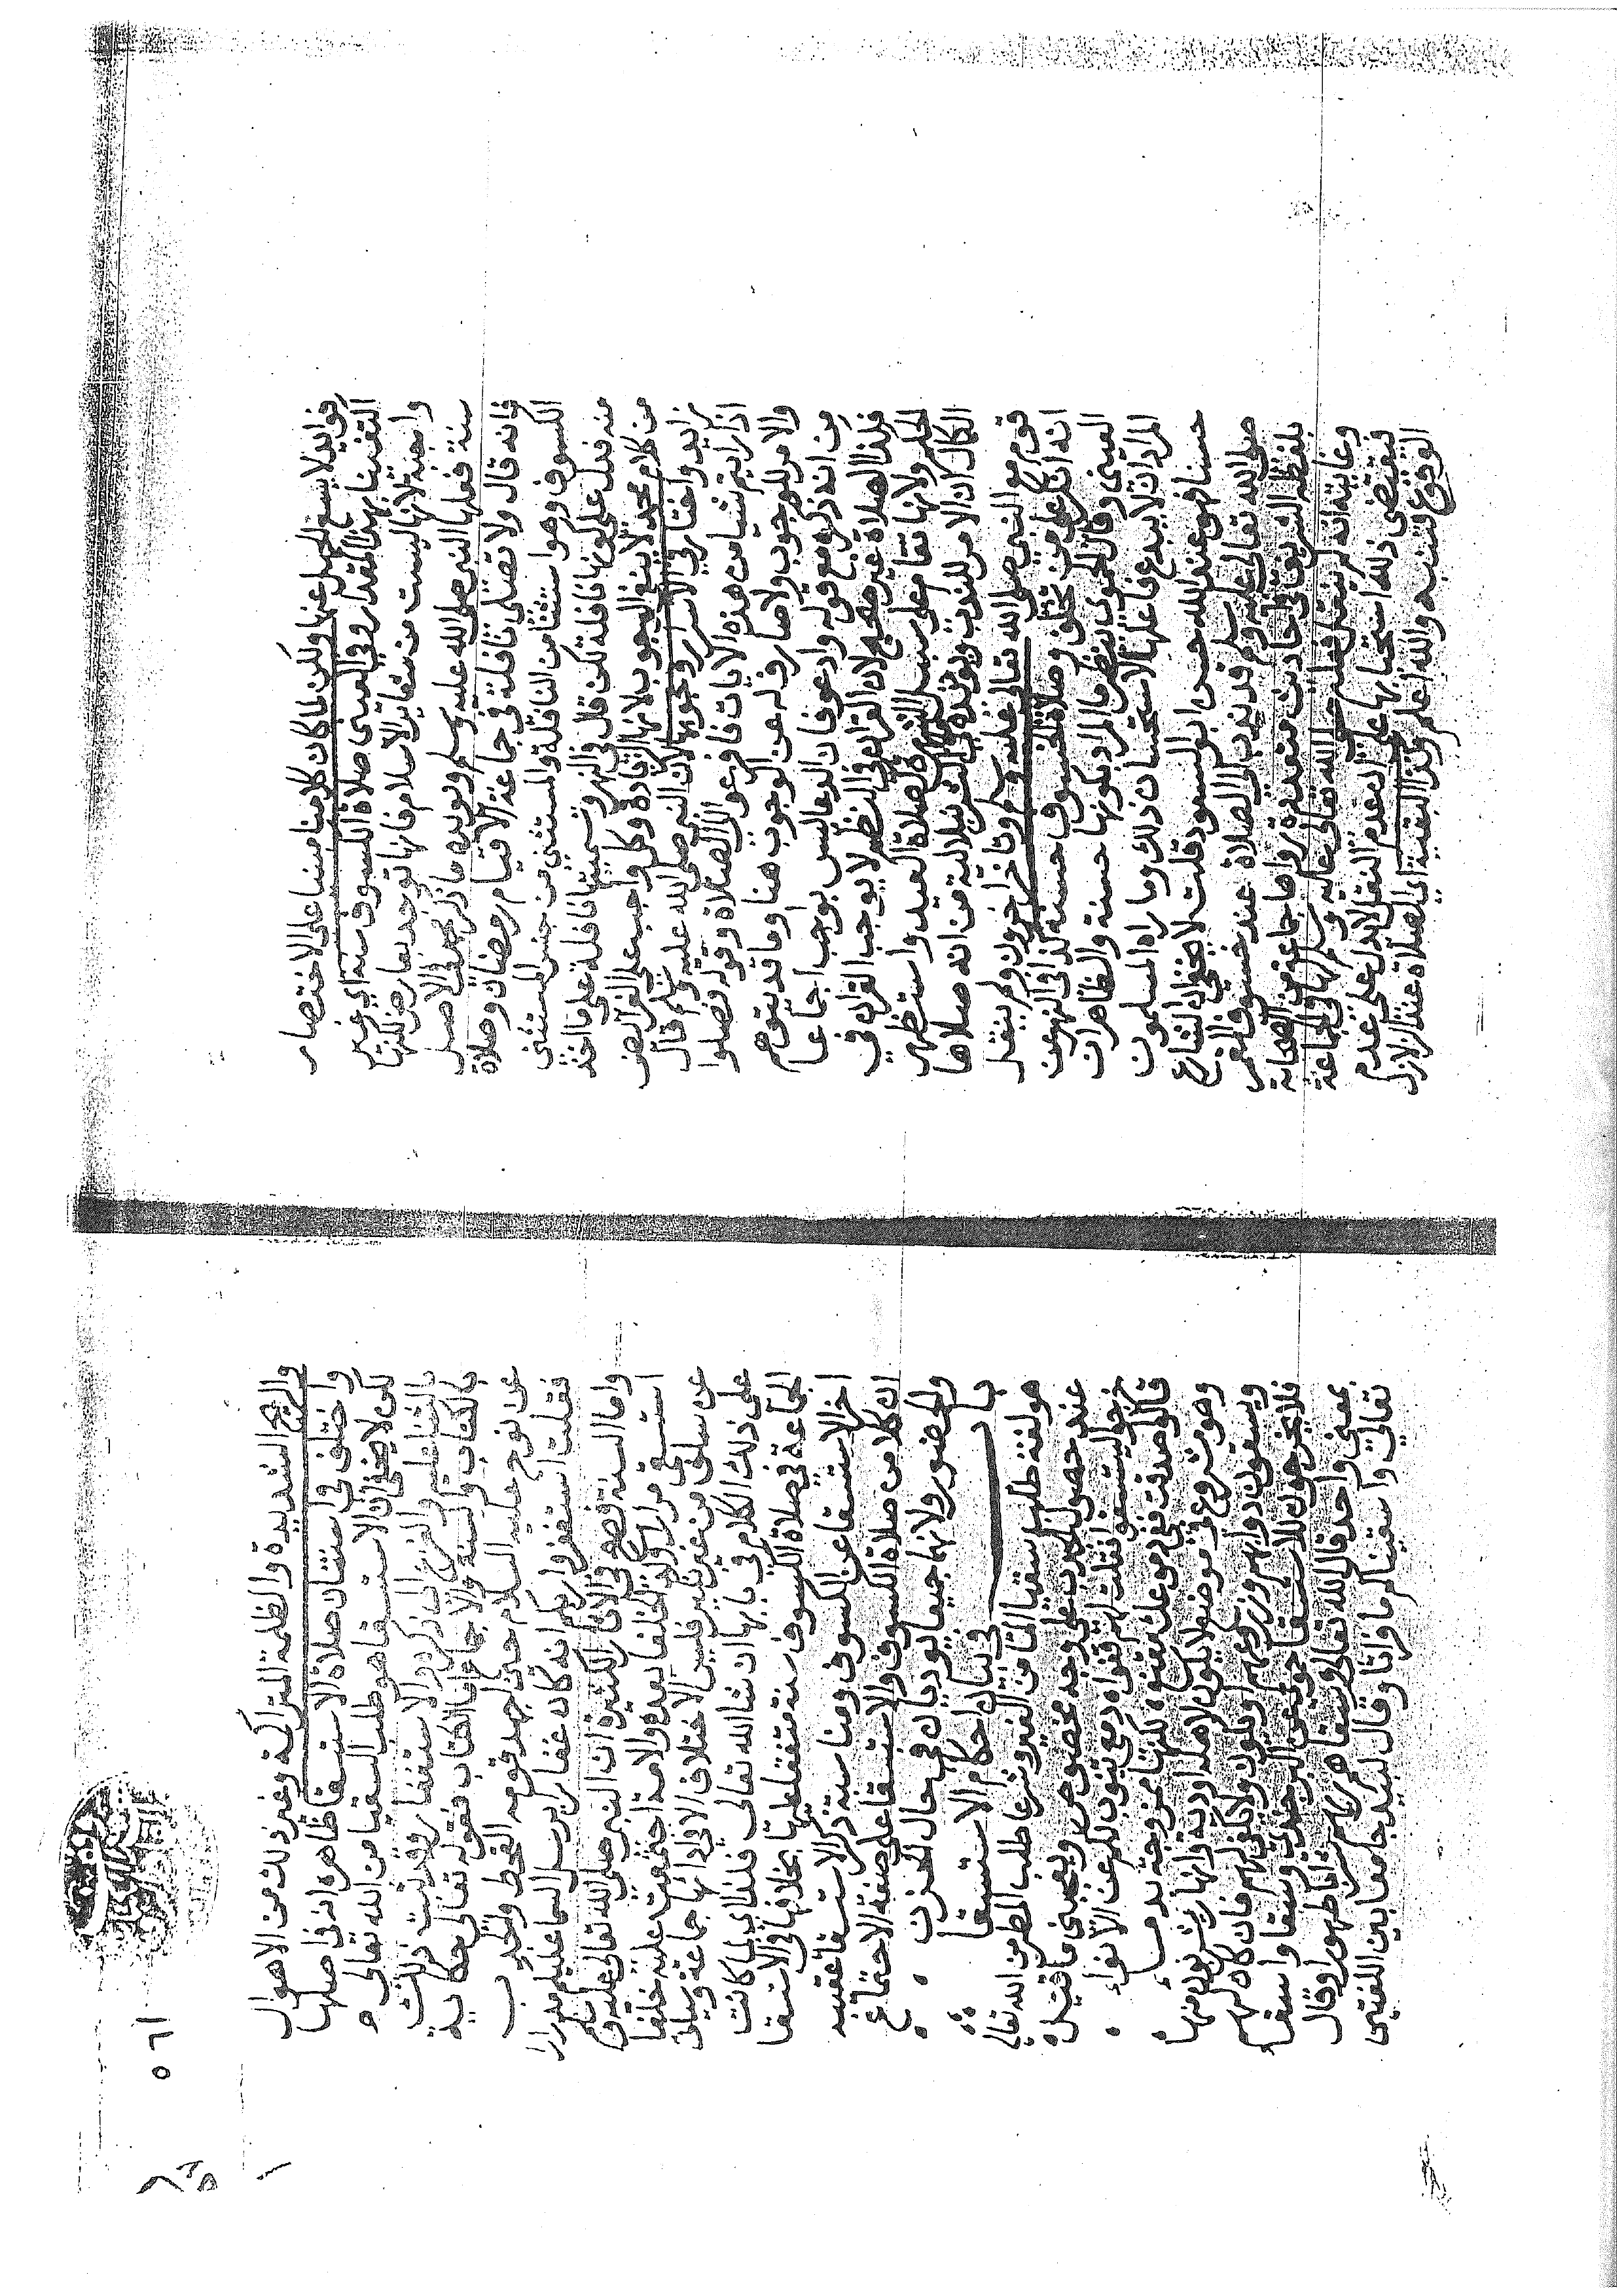 فوايد لا يسع المحل عنها ولكن لما كان كلامنا مبنيا على الاختصار
اكتفينا بهذا المقدار وفي العيني صلاة الكسوف سنة اي غير
واجبة لانها ليست من شعاير الاسلام فانها توجد بعارض لكنها
سنة فعلها النبي صلى الله عليه وسلم ويؤيده ما ذكر محمد في الاصل
فانه قال ولا تصلى نافلة في جماعة الا قيام رمضان وصلاة
الكسوف وهو استثنا من النافلة والمستثنى من جنس المستثنى
منه فدل على كونها نافلة لكن قال في النهر وتسميتها نافلة على ما اخذ
من كلام محمد لا ينفي الوجوب لانها الزيادة وكل واجب على الفرايض
زايد واختار في الاسرار وجوبها لان النبي صلى الله عليه وسلم قال
اذا رايتم شيا من هذه الايات فافزعوا الى الصلاة وقوله فصلوا
والامر للوجوب ولا صارف له عن الوجوب هنا وما قد يتوهم
من انه ذكره مع قوله وادعوا فان الدعا ليس بواجب اجماعا
فكذا الصلاة غير صحيح لان القران في النظم لا يوجب القران في
الحكم ولانها تقام على سبيل الشهرة كصلاة العيد واستظهر
الكمال ان الامر للندب ويؤيده ما في الشرنبلالية من انه صلاها
قوم مع النبي صلى الله تعالى عليه وسلم وتاخر اخرون ولم ينقل
انه انكر على من تخلف وصلاة الخسوف حسنة كذا في النهر عن
العيني وقال الحموي ينظر ما المراد بكونها حسنة والظاهر ان
المراد ان لا يبدع فاعلها لاستحسان ذلك وما راه المسلمون
حسنا فهو عند الله حسن ابو السعود قلت لا يخفى ان الشارع
صلى الله تعالى عليه وسلم قد ندب الى الصلاة عند خسوف القمر
بلفظه الشريف في احاديث متعددة رواها جماعة من الصحابة
وغايته انه لم ينقل فعله صلى الله تعالى عليه وسلم لها في الجماعة
فيقتضي ذلك استحبابها على ان عدم النقل لا يدل على عدم
الوقوع فتنبه والله اعلم وكذا البقية اي الصلاة عند الزلازل
٥٦١
والريح الشديدة والظلمة المتراكمة وغير ذلك من الاهوال
واختلف في استنان صلاة الاستسقا ظاهره انه في اصلها
لكن لا يخفى ان الاستسقا هو طلب السقيا من الله تعالى
بالثنا عليه والفزع اليه ذكره والاستغفار وقد ثبت ذلك
بالكتاب والسنة والاجماع اما الكتاب فقوله تعالى حكاية
عن نوح عليه السلام حين اجهد قومه القحط والجدب
فقلت استغفروا ربكم انه كان غفارا يرسل السما عليكم مدرارا
واما السنة فصح في الاثار الكثيرة ان النبي صلى الله تعالى عليه وسلم
استسقى مرارا وكذا الخلفا بعده والامة اجتمعت عليه خلفا
عن سلف من غير نكير فليس الاختلاف الا في ادائها جماعة وسياتي
على ذلك الكلام في بابها ان شا الله تعالى فلهذا اي لما كانت
الجماعة في صلاة الكسوف سنة متفقا عليها بخلافها في الاستسقا
اخر الاستسقا عن الكسوف ومناسبة ذكر الاستسقا عقيبه
ان كلا من صلاة الكسوف والاستسقا على صفة الاجتماع
والحضور ولانهما جميعا يوديان في حال الحزن
باب في بيان احكام الاستسقا
هو لغة طلب السقيا اي من الغير وشرعا طلب المطر من الله تعالى
عند حصول الجدب على وجه مخصوص ويعجبني ما قيل
خرجوا ليستسقوا فقلت لهم قفوا دمعي ينوب لكم عن الانواء
قالوا صدقت ففي دموعك مقنع لكنها ممزوجة بدماء
وهو مشروع في موضع لا يكون لاهله اودية وانهار يشربون منها
ويسقون دوابهم وزروعهم او يكون ولا يكفي لهم فان كان لهم
فلا يخرجون للاستسقا حموي عن البرجندي وسقا واسقا
بمعنى واحد قال الله تعالى وسقاهم ربهم شرابا طهورا وقال
تعالى واسقيناكم ما فراتا وقال لبيد جامعا بين اللغتين